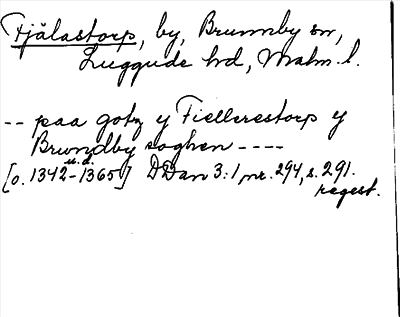 Fjälastorp, by, Brunnby sn,
Luggude hd, Malm. l.
-- paa gotz y Fiellerestorp y
Brundby soghen ----
u.d.
[o. 1342-1365] DDan 3:1, nr. 294, s. 291.
regest.